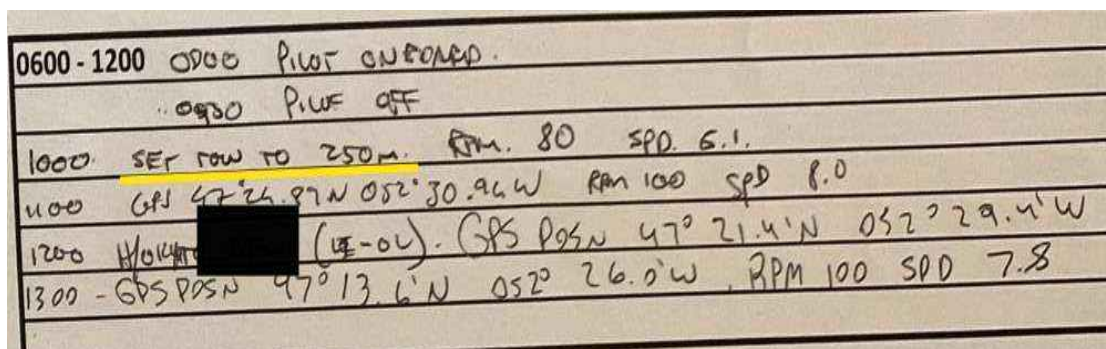 0600 - 1200 0900 PILOT ONBOARD.
0930 PILOT OFF
1000 SET TOW TO 250m. RPM. 80 SPD. 6.1.
1100 GPS 47°24.87N 052°30.94W RPM 100 SPD 8.0
1200 GPS POSN 47° 21.4'N 052° 29.4'W
1300 - GPS POSN 47° 13.6'N 052° 26.0'W, RPM 100 SPD 7.8